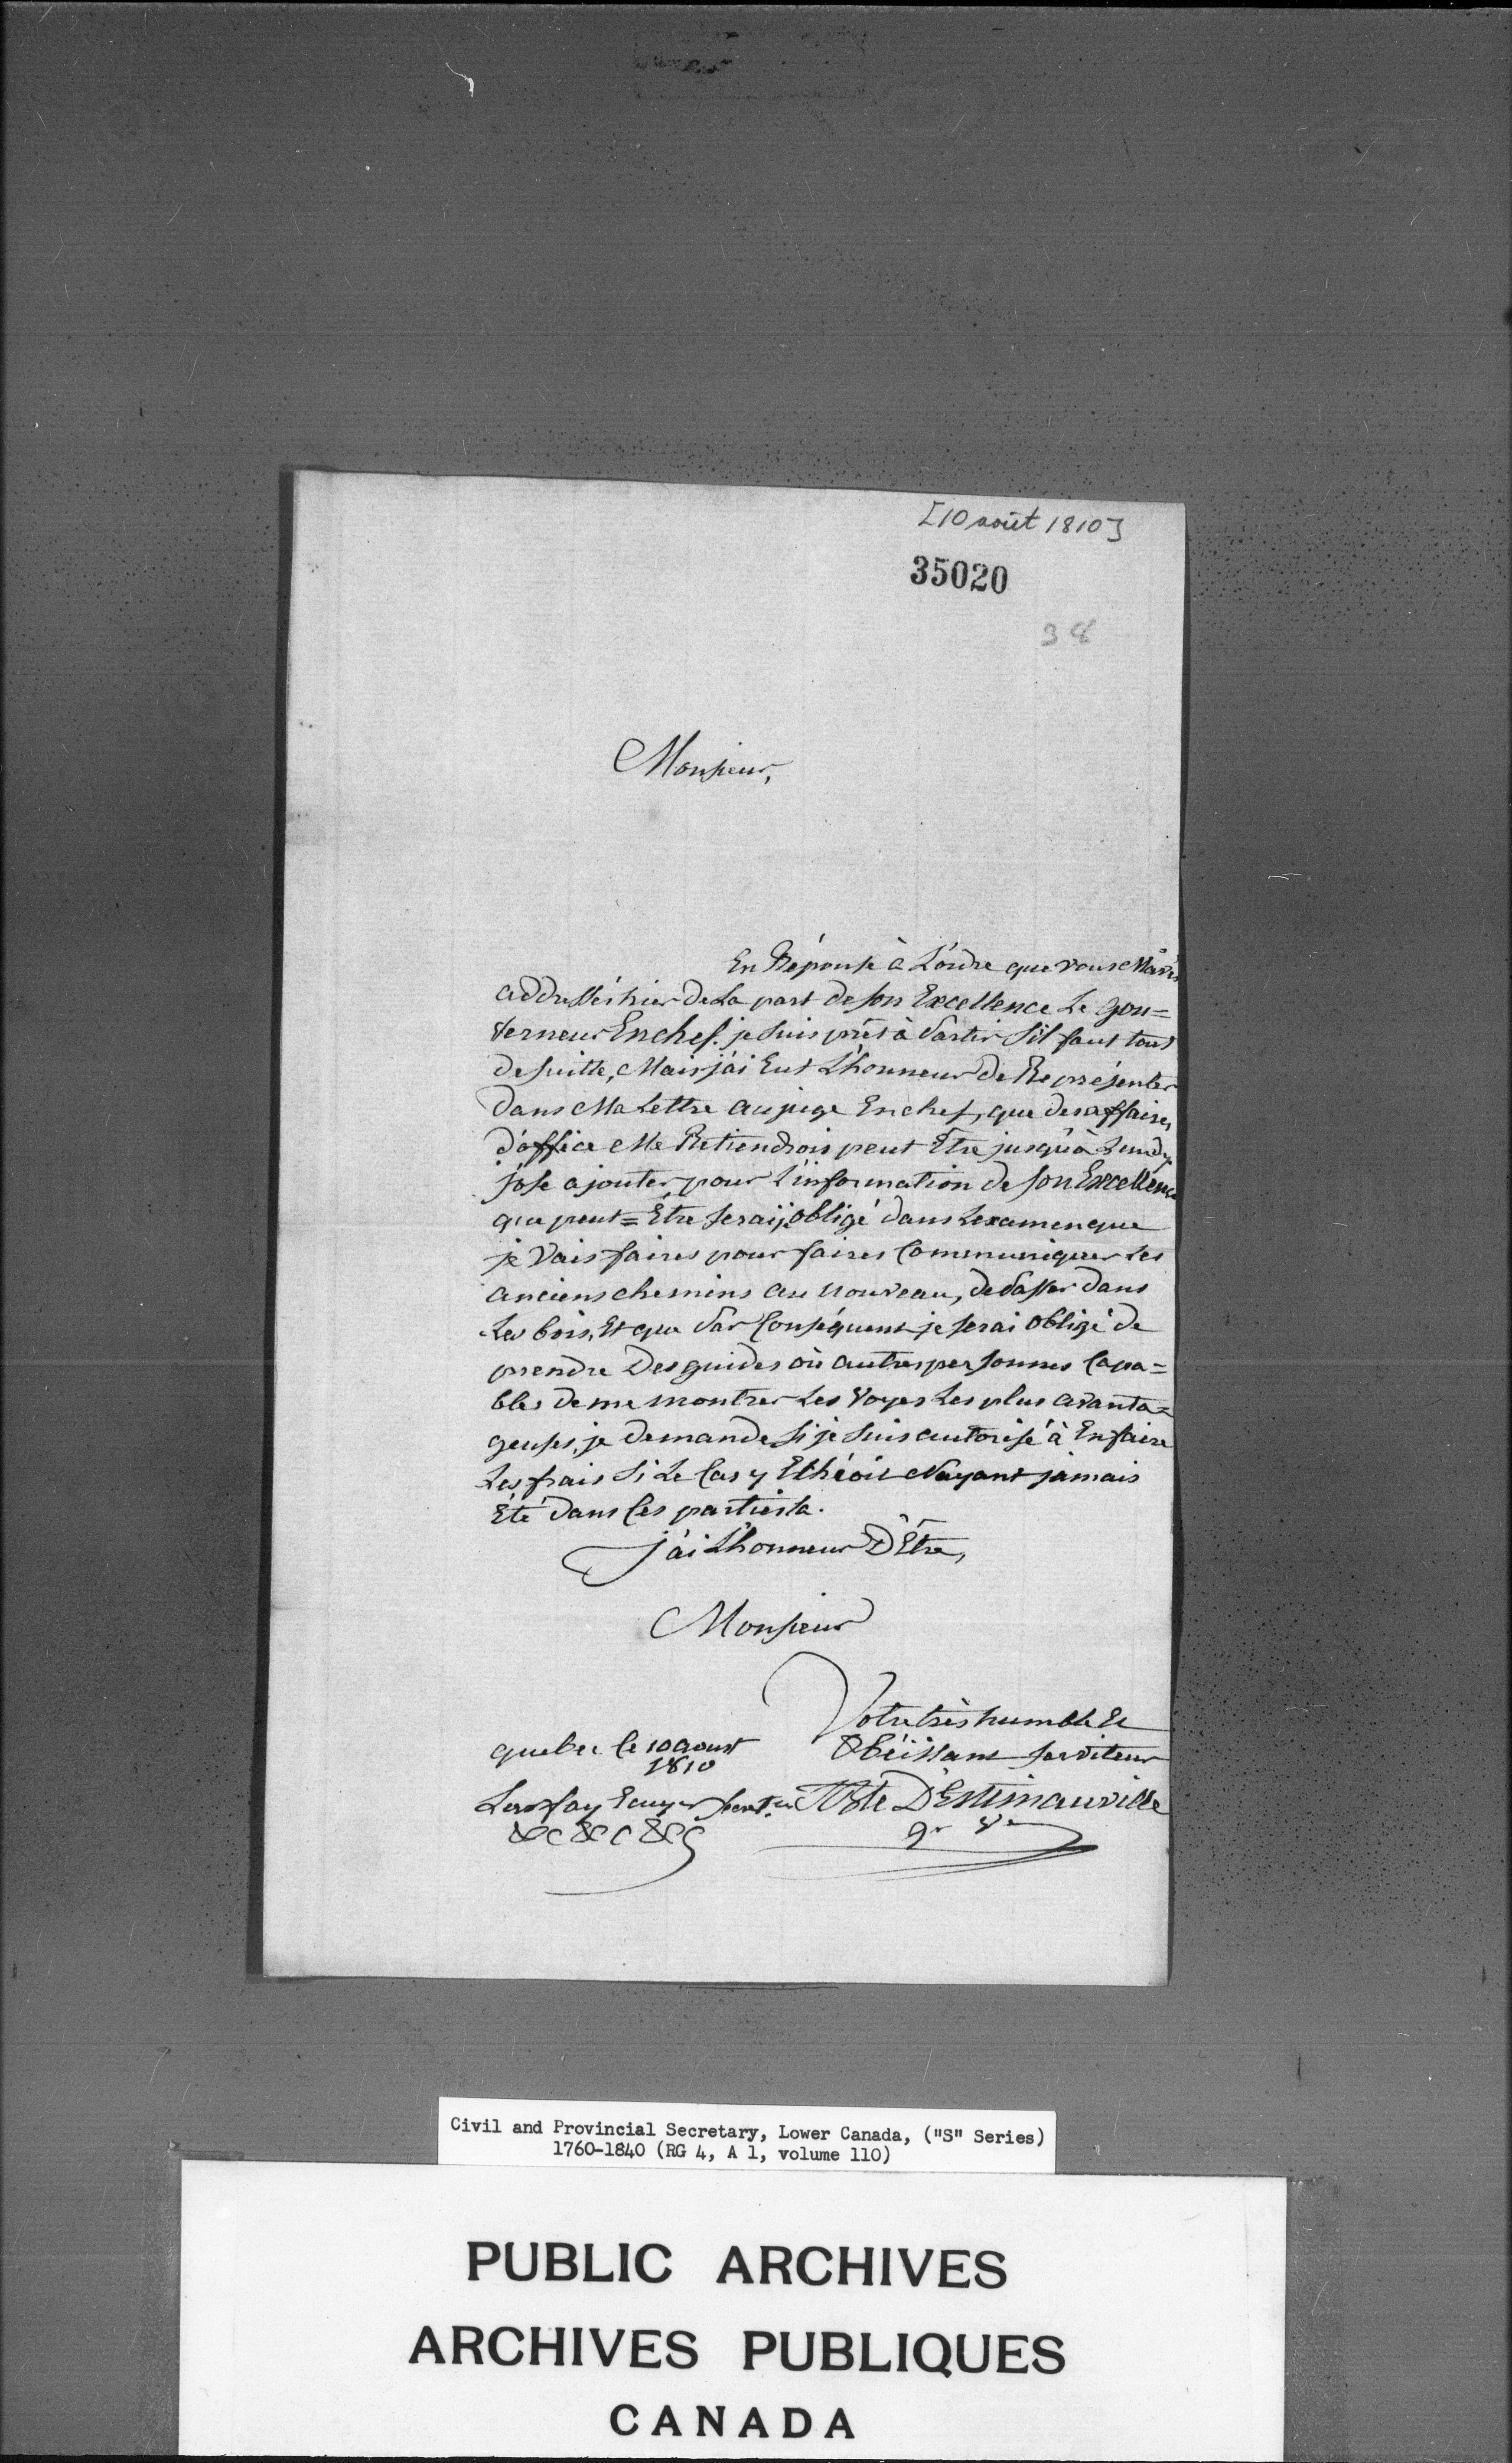 [10 août 1810]
35020
38
Monsieur,
En Réponse à L'ordre que vous M'avés
addressés hier De La part de son Excellence Le Gou=
verneur En chef. je suis prêt à Partir s'il faut tout
de suitte, Mais j'ai Eut L'honneur de Représenter
dans Ma Lettre au juge En chef, que des affaires
d'office Me Retiendrois peut Être jusqu'à Lundy
j'ose ajouter pour L'information de son Excellence
que peut=Être serai je obligé dans L'examen que
je Vais faires pour faires Communiquer Les
anciens chemins au nouveau, de Passer dans
Les bois, Et que Par Conséquent je serai obligé de
prendre Des guides où autres personnes Capa=
bles de me montrer Les Voyes Les plus avanta=
geuses, je demande si je suis autorisé à En faire
Les frais si Le Cas y Echéoit N'ayant jamais
Été dans Ces parties la.
j'ai L'honneur D'Être,
Monsieur
Votre très humble Et
Obéissant serviteur
quebec le 10 aoust
1810
Ecuyer
&c &c &c
Bte D'Estimauville
gr Vr
Civil and Provincial Secretary, Lower Canada, ("S" Series)
1760-1840 (RG 4, A 1, volume 110)
PUBLIC ARCHIVES
ARCHIVES PUBLIQUES
CANADA